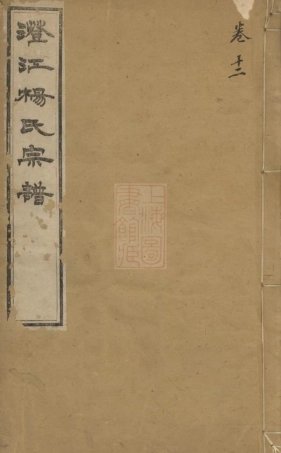 卷十二
澄江楊氏宗譜
上海圖
書館臧